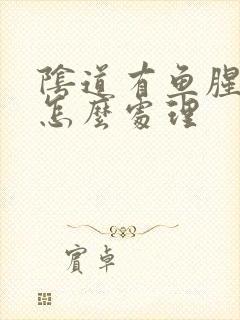 陰道有魚腥
怎麼處理
賓卓